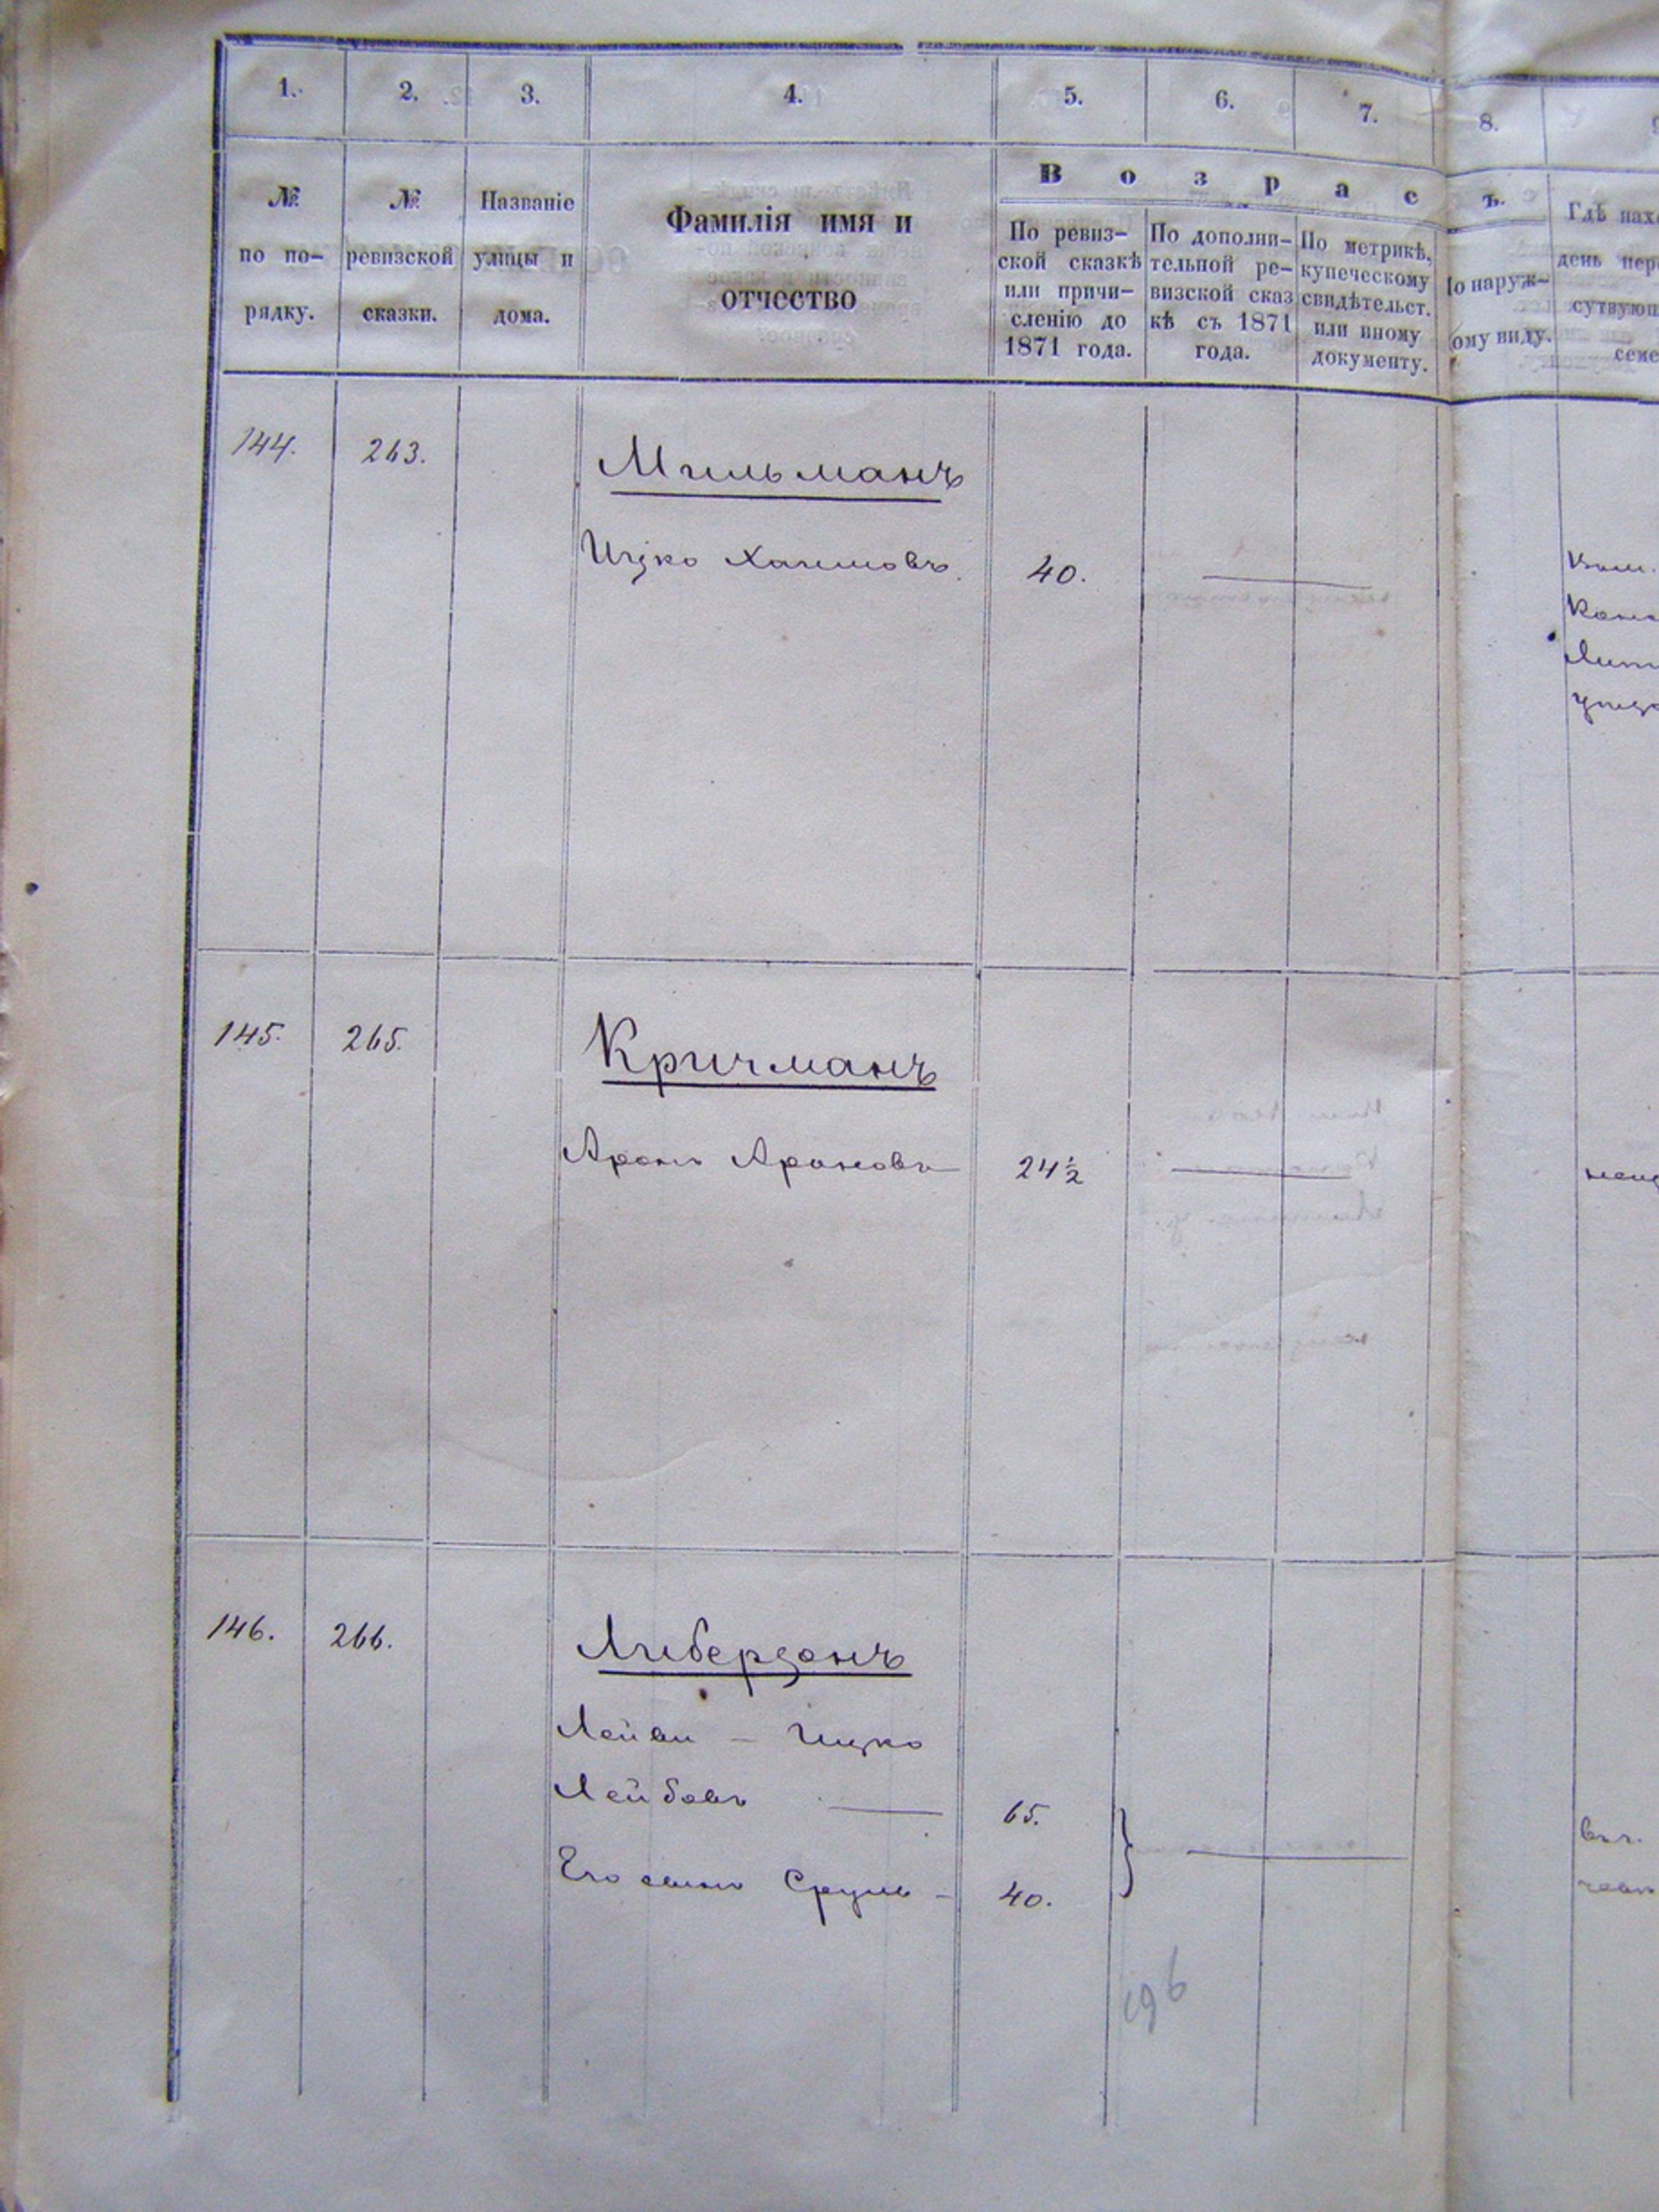 1. 2. 3. 4. 5. 6. 7. 8.
№ по по-рядку.
№ ревизской сказки.
Названіе улицы и дома.
Фамилія имя и
отчество
Возрас ъ.
По ревиз-
ской сказкѣ
или причи-
сленію до
1871 года.
По дополни-
тельной ре-
визской сказ
кѣ съ 1871
года.
По метрикѣ,
купеческому
свидѣтельст.
или иному
документу.
о наруж-
ому виду.
Гдѣ нахо
день пер
сутвующ
семе
144. 263. Мильманъ
Ицко Хаимовъ. 40.
145. 265. Кричманъ
Аронъ Ароновъ 24½
146. 266. Либерзонъ
Лейви - Ицко
Лейбовъ 65.
Его сынъ Сруль - 40.
196